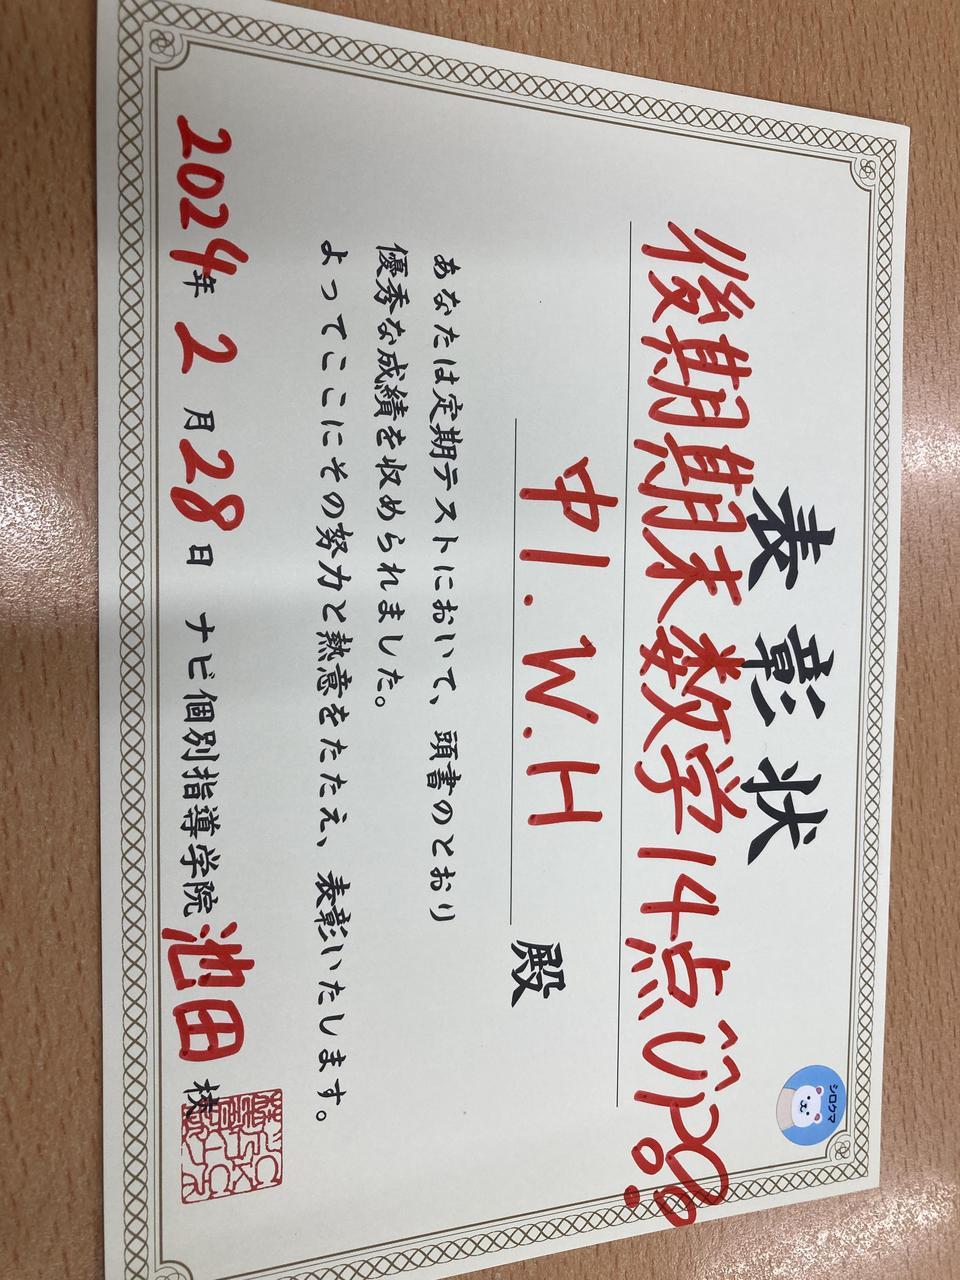 表彰状
シロクマ
後期期末数学14点UP
中1.W.H 殿
あなたは定期テストにおいて、頭書のとおり
優秀な成績を収められました。
よってここにその努力と熱意をたたえ、表彰いたします。
2024年2月28日 ナビ個別指導学院 池田 校